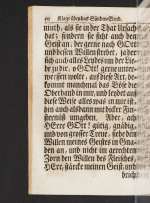 50 Klage über das Sünden-Elend.
muth, als sie in ihr That Ursach
hat; sondern sie sieht auch den
Geist an, der gerne nach GOtt
und dessen Willen strebet, ja der
sich auch alles Leydes um der Lie-
be zu dir, o GOtt! gerne unter-
werffen wolte, auf diese Art, be-
kommt manchmal das Böse die
Oberhand in mir, und leydet auf
diese Weise alles was in mir ist,
bin auch alsdann mit dicker Fin-
sternüß umgeben. Aber, ach
HErr GOtt! gütig, gnädig,
und von grosser Treue, siehe den
Willen meines Geistes in Gna-
den an, und nicht im gerechten
Zorn den Willen des Fleisches,
HErr, stärcke meinen Geist, und